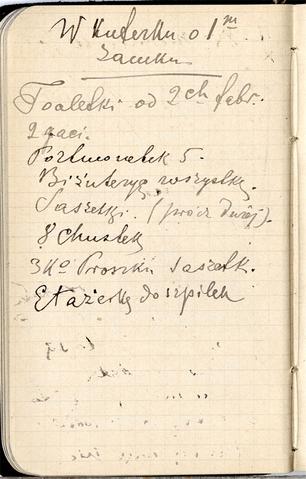 W kuferku o 1m
zamku
Toaletki od 2ch fabr.
2 gaci.
Portmonetek 5.
Biżuteryę wszystką.
Saszetki. (prócz Dużej).
8 Chustek
3 Ko Proszku Saszetk.
Etażerkę do szpilek